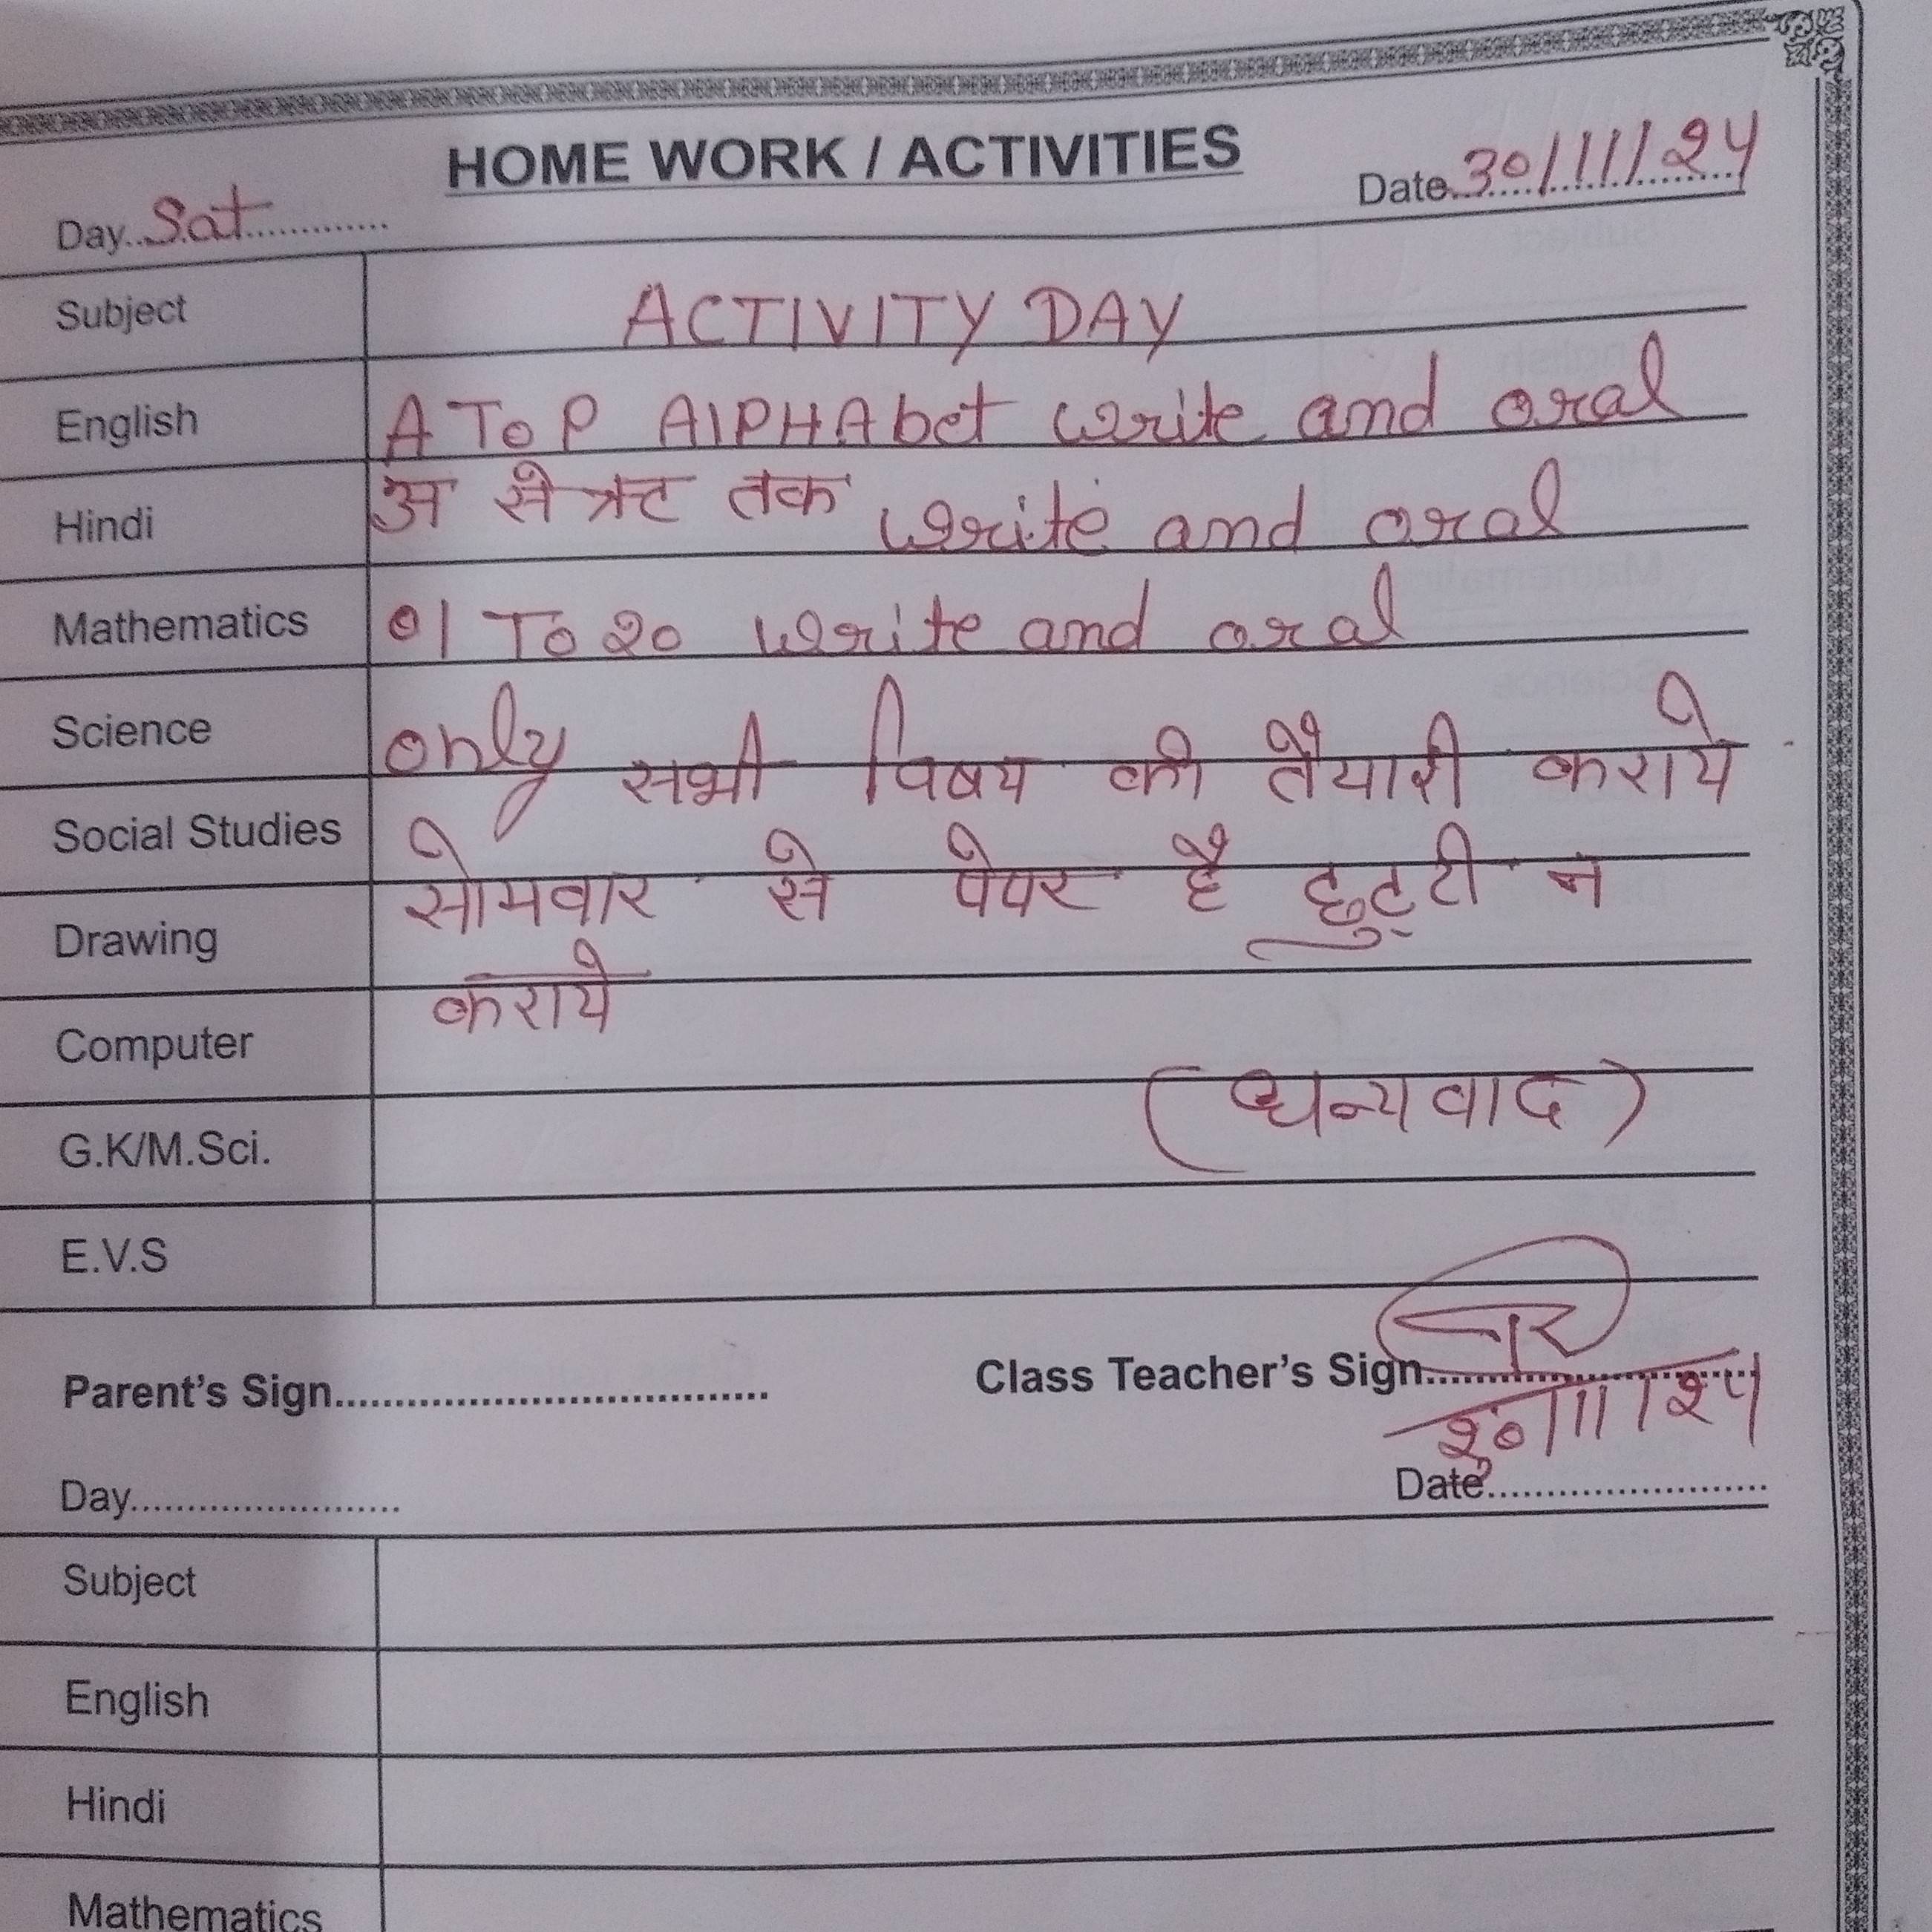 HOME WORK / ACTIVITIES
Day..Sat............ Date.30/11/24
Subject ACTIVITY DAY
English A To P AlPHAbet write and oral
Hindi अ से ऋ तक write and oral
Mathematics 01 To 20 write and oral
Science only सभी विषय की तैयारी कराये
Social Studies सोमवार से पेपर है छुट्टी न
Drawing कराये
Computer
(धन्यवाद)
G.K/M.Sci.
E.V.S
Parent's Sign................................. Class Teacher's Sign.........................
30/11/24
Day........................ Date.........................
Subject
English
Hindi
Mathematics